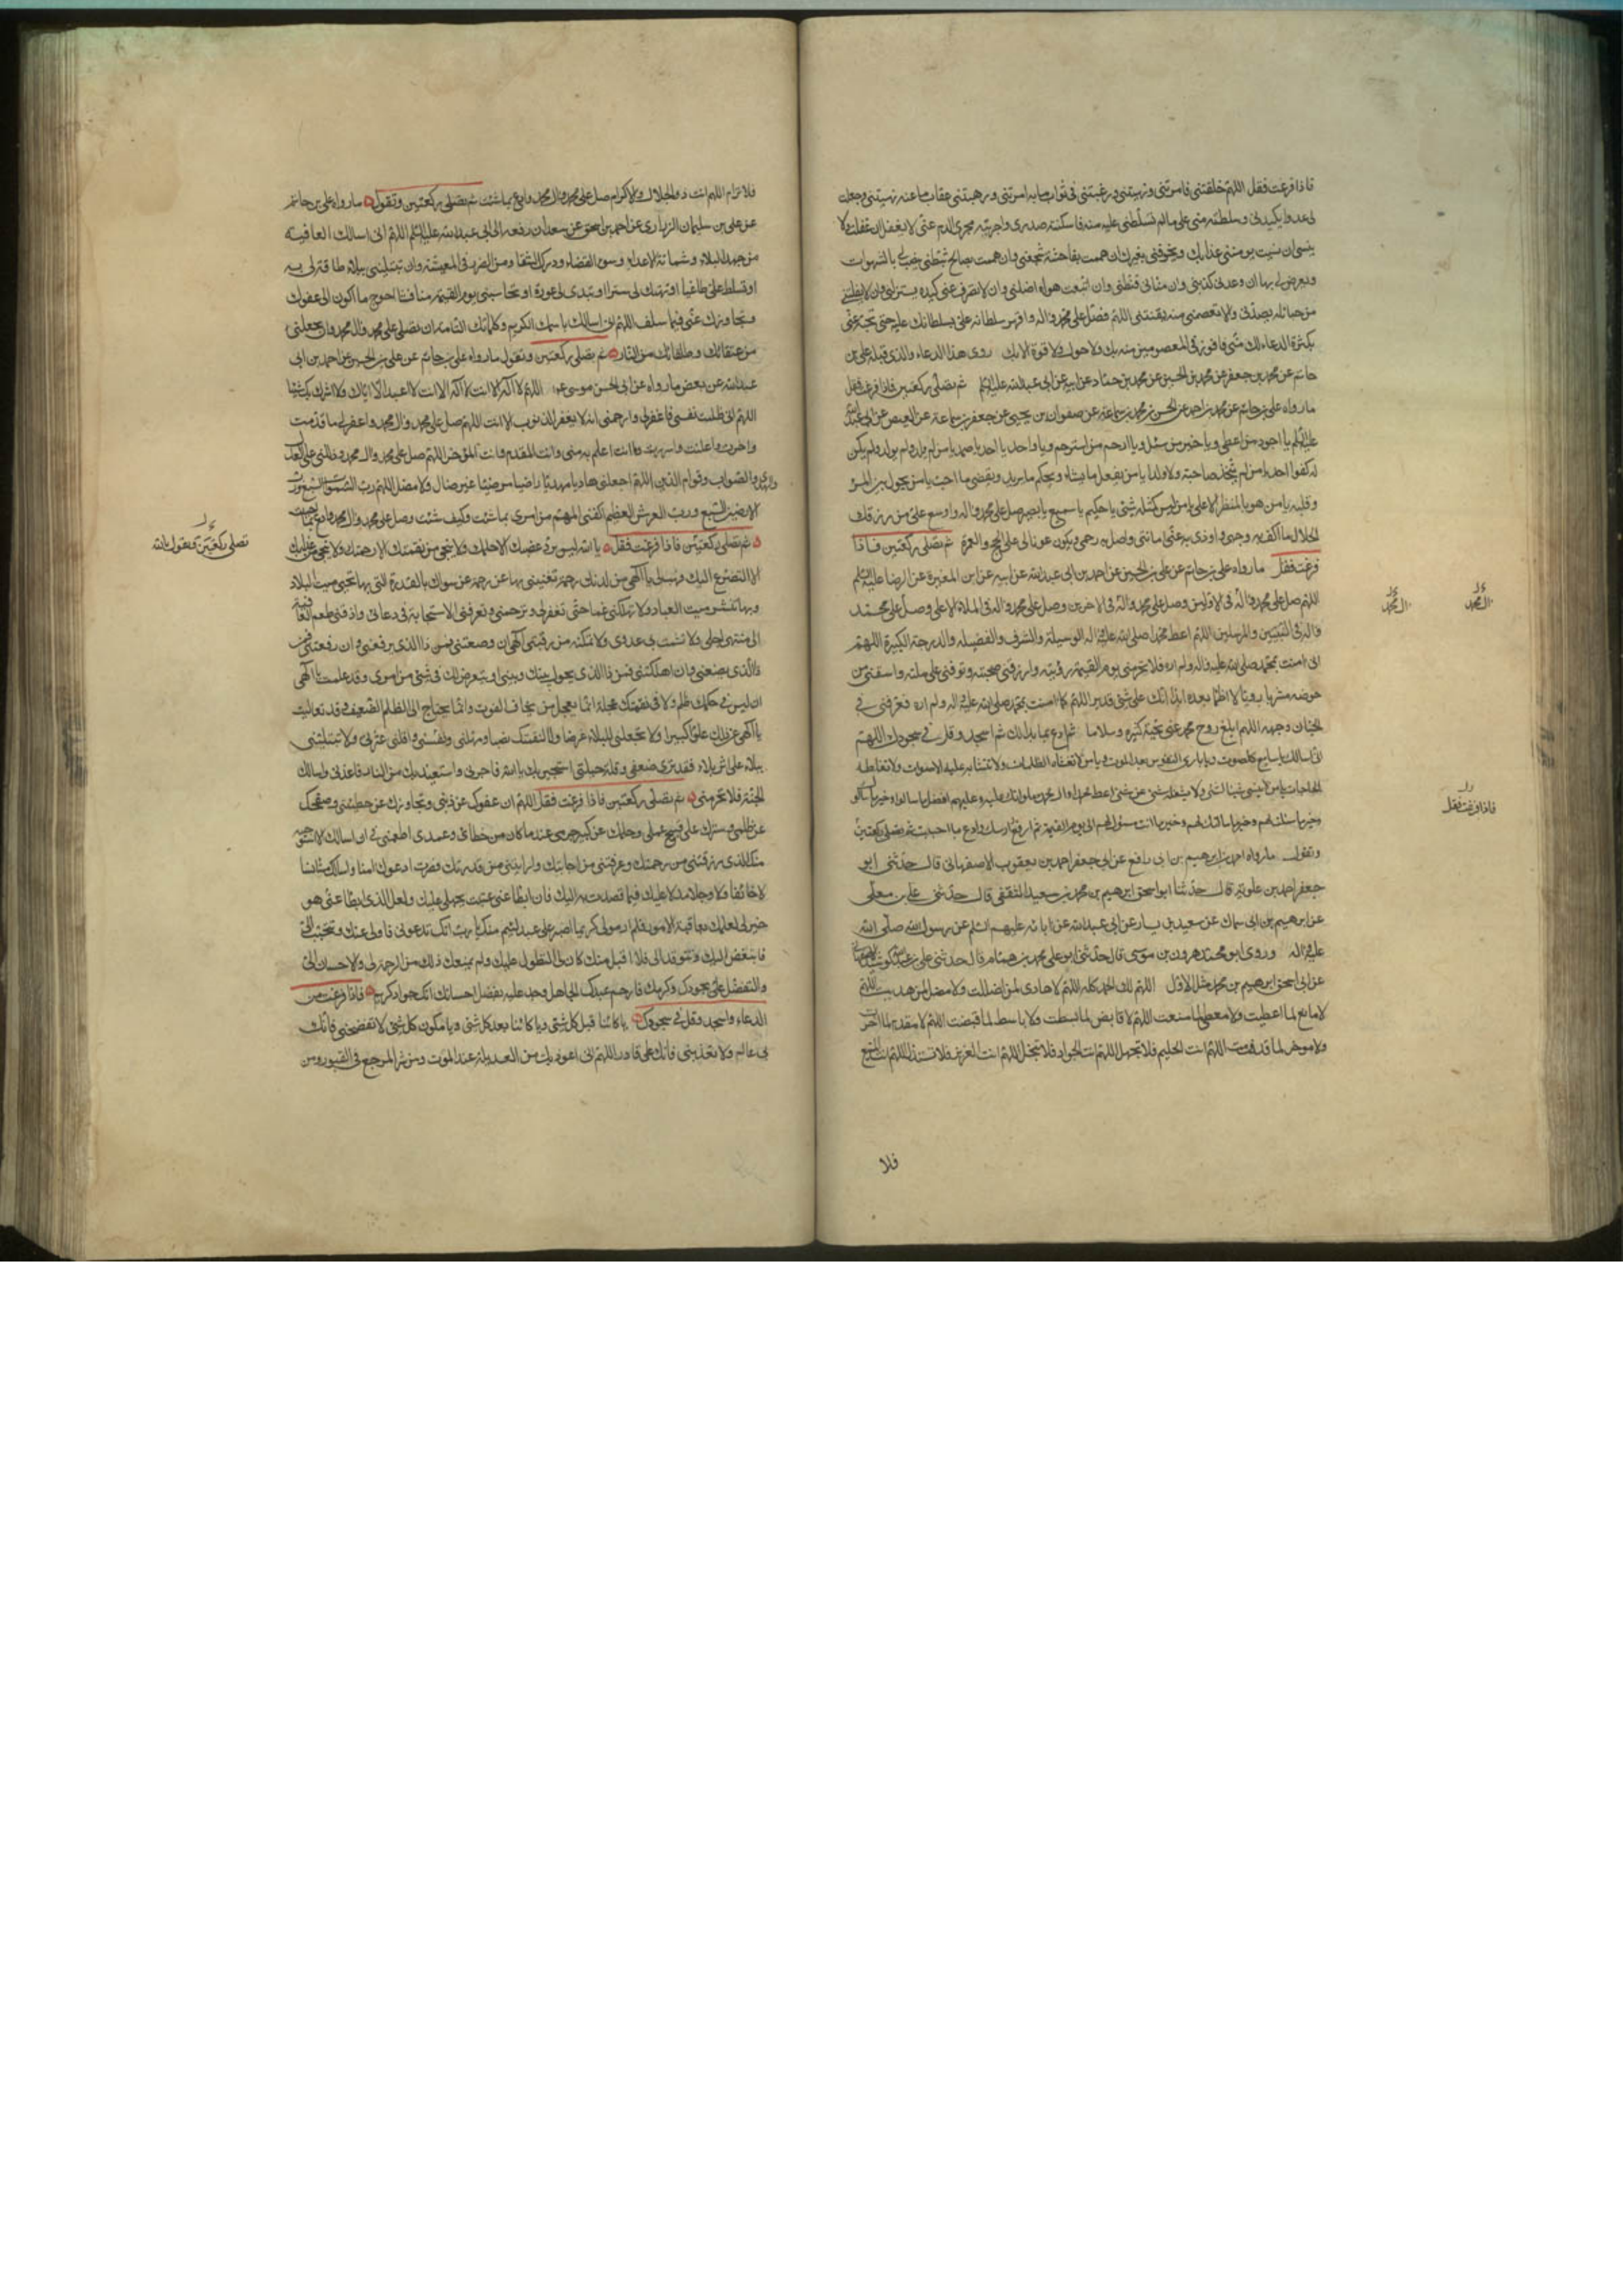 فاذا فرغت فقل اللهم خلقتنى فامرتنى ونهيتنى ورغبتنى فى ثواب ما به امرتنى ورهبتنى عقاب ما عنه نهيتنى وجعلت
لى عدوا يكيدنى وسلطته منى على ما لم تسلطنى عليه منه فاسكنته صدرى واجريته مجرى الدم منى لا يغفل ان غفلت ولا
ينسى ان نسيت يومننى عذابك ويخوفنى بغيرك ان هممت بفاحشة شجعنى وان هممت بصالح ثبطنى ينصب لى بالشهوات
ويعرض لى بها ان وعدنى كذبنى وان منانى قنطنى وان اتبعت هواه اضلنى وان لا تصرف عنى كيده يستزلنى وان لا تفلتنى
من حبائله يصدنى والا تعصمنى منه يفتننى اللهم فصل على محمد واله واقهر سلطانه على بسلطانك عليه حتى تحبسه عنى
بكثرة الدعاء لك منى فافوز فى المعصومين منه بك ولا حول ولا قوة الا بك روى هذا الدعاء والذى قبله على بن
حاتم عن محمد بن جعفر عن محمد بن الحسين عن محمد بن حماد عن ابيه عن ابى عبد الله عليه السلم ثم تصلى ركعتين فاذا فرغت فقل
ما رواه على بن حاتم عن محمد بن احمد عن الحسن بن محمد بن سماعة عن صفوان بن يحيى عن جعفر بن سماعة عن العيص عن ابى عبد الله
عليه السلم يا اجود من اعطى ويا خير من سئل ويا ارحم من استرحم ويا واحد يا احد يا صمد يا من لم يلد ولم يولد ولم يكن
له كفوا احد يا من لم يتخذ صاحبة ولا ولدا يا من يفعل ما يشاء ويحكم ما يريد ويقضى ما احب يا من يحول بين المرء
وقلبه يا من هو بالمنظر الاعلى يا من ليس كمثله شئ يا حكيم يا سميع يا بصير صل على محمد واله واوسع على من رزقك
الحلال ما اكف به وجهى واودى به عنى امانتى واصل به رحمى ويكون عونا لى على الحج والعمرة ثم تصلى ركعتين فاذا
فرغت فقل ما رواه على بن حاتم عن على بن الحسين عن احمد بن ابى عبد الله عن ابيه عن ابن المغيرة عن الرضا عليه السلم
اللهم صل على محمد واله فى الاولين وصل على محمد واله فى الاخرين وصل على محمد واله فى الملاء الاعلى وصل على محمد
واله فى النبيين والمرسلين اللهم اعط محمدا صلى الله عليه واله الوسيلة والشرف والفضيلة والدرجة الكبيرة اللهم
انى امنت بمحمد صلى الله عليه واله ولم اره فلا تحرمنى يوم القيمة رؤيته وارزقنى صحبته وتوفنى على ملته واسقنى من
حوضه مشربا رويا لا اظما بعده ابدا انك على شئ قدير اللهم كما امنت بمحمد صلى الله عليه واله ولم اره فعرفنى فى
الجنان وجهه اللهم ابلغ روح محمد عنى تحية كثيرة وسلاما ثم ادع بما بدا لك ثم اسجد وقل فى سجودك اللهم
انى اسالك يا سامع كل صوت ويا بارى النفوس بعد الموت يا من لا تغشاه الظلمات ولا تتشابه عليه الاصوات ولا تغلطه
الحاجات يا من لا ينسى شيئا لشئ ولا يشغله شئ عن شئ اعط محمدا وال محمد صلواتك عليه وعليهم افضل ما سالوا وخير ما سالوك
وخير ما سئلت لهم وخير ما سالتك لهم وخير ما انت مسؤل لهم الى يوم القيمة ثم ارفع راسك وادع بما احببت ثم تصلى ركعتين
وتقول ما رواه احمد بن ابرهيم بن ابى رافع عن ابى جعفر احمد بن يعقوب الاصفهانى قال حدثنى ابو
جعفر احمد بن علويه قال حدثنا ابو اسحق ابرهيم بن محمد بن سعيد الثقفى قال حدثنى على بن معلى
عن ابرهيم بن ابى سماك عن سعيد بن يسار عن ابى عبد الله عن ابائه عليهم السلم عن رسول الله صلى الله
عليه واله وروى ابو محمد هرون بن موسى قال حدثنى ابو على محمد بن همام قال حدثنى على بن عبد الله كوشيد الاصفهانى
عن ابى اسحق ابرهيم بن محمد مثل الاول اللهم لك الحمد كله اللهم لا هادى لمن اضللت ولا مضل لمن هديت اللهم
لا مانع لما اعطيت ولا معطى لما منعت اللهم لا قابض لما بسطت ولا باسط لما قبضت اللهم لا مقدم لما اخرت
ولا موخر لما قدمت اللهم انت الحليم فلا تجهل اللهم انت الجواد فلا تبخل اللهم انت العزيز فلا تستذل اللهم انت المنيع
فلا
ال محمد
ال محمد
فاذا فرغت فقل
فلا ترام اللهم انت ذو الجلال والاكرام صل على محمد وال محمد وادع بما شئت ثم تصلى ركعتين وتقول ما رواه على بن حاتم
عن على بن سليمان الزرارى عن احمد بن اسحق عن سعدان رفعه الى ابى عبد الله عليه السلم اللهم انى اسالك العافية
من جهد البلاء وشماتة الاعداء وسوء القضاء ودرك الشقاء ومن الضرر فى المعيشة وان تبتلينى ببلاء لا طاقة لى به
او تسلط على طاغيا او تهتك لى سترا او تبدى لى عورة او تحاسبنى يوم القيمة مناقشا احوج ما اكون الى عفوك
وتجاوزك عنى فيما سلف اللهم انى اسالك باسمك الكريم وكلماتك التامة ان تصلى على محمد وال محمد وان تجعلنى
من عتقائك وطلقائك من النار ثم تصلى ركعتين وتقول ما رواه على بن حاتم عن على بن الحسين عن احمد بن ابى
عبد الله عن بعض ما رواه عن ابى الحسن موسى ع اللهم لا اله الا انت لا اله الا انت لا اعبد الا اياك ولا اشرك بك شيئا
اللهم انى ظلمت نفسى فاغفر لى وارحمنى انه لا يغفر الذنوب الا انت اللهم صل على محمد وال محمد واغفر لى ما قدمت
واخرت واعلنت واسررت وما انت اعلم به منى وانت المقدم وانت المؤخر اللهم صل على محمد وال محمد ودلنى على العدل
والهدى والصواب وقوام الدين اللهم اجعلنى هاديا مهديا راضيا مرضيا غير ضال ولا مضل اللهم رب السموات السبع ورب
الارضين السبع ورب العرش العظيم اكفنى المهم من امرى بما شئت وكيف شئت وصل على محمد وال محمد وادع بما احببت
ثم تصلى ركعتين فاذا فرغت فقل يا الله ليس يرد غضبك الا حلمك ولا ينجى من نقمتك الا رحمتك ولا ينجى من عذابك
الا التضرع اليك فهب لى يا الهى من لدنك رحمة تغنينى بها عن رحمة من سواك بالقدرة التى بها تحيى ميت البلاد
وبها تنشر ميت العباد ولا تهلكنى غما حتى تغفر لى وترحمنى وتعرفنى الاستجابة فى دعائى واذقنى طعم العافية
الى منتهى اجلى ولا تشمت بى عدوى ولا تمكنه من رقبتى الهى ان وضعتنى فمن ذا الذى يرفعنى وان رفعتنى فمن
ذا الذى يضعنى وان اهلكتنى فمن ذا الذى يحول بينك وبينى او يتعرض لك فى شئ من امرى وقد علمت يا الهى
ان ليس فى حكمك ظلم ولا فى نقمتك عجلة انما يعجل من يخاف الفوت وانما يحتاج الى الظلم الضعيف وقد تعاليت
يا الهى عن ذلك علوا كبيرا ولا تجعلنى للبلاء غرضا ولا لنقمتك نصبا ومهلنى ونفسنى واقلنى عثرتى ولا تبتلينى
ببلاء على اثر بلاء فقد ترى ضعفى وقلة حيلتى استجير بك يا الله فاجرنى واستعيذ بك من النار فاعذنى واسالك
الجنة فلا تحرمنى ثم تصلى ركعتين فاذا فرغت فقل اللهم ان عفوك عن ذنبى وتجاوزك عن خطيئتى وصفحك
عن ظلمى وسترك على قبيح عملى وحلمك عن كبير جرمى عند ما كان من خطائى وعمدى اطمعنى فى ان اسالك ما لا استوجبه
منك الذى رزقتنى من رحمتك وعرفتنى من اجابتك واريتنى من قدرتك فصرت ادعوك امنا واسالك مستانسا
لا خائفا ولا وجلا مدلا عليك فيما قصدت به اليك فان ابطا عنى عتبت بجهلى عليك ولعل الذى ابطا عنى هو
خير لى لعلمك بعاقبة الامور فلم ار مولى كريما اصبر على عبد لئيم منك يا رب انك تدعونى فاولى عنك وتتحبب الى
فاتبغض اليك وتتودد الى فلا اقبل منك كان لى التطول عليك ولم يمنعك ذلك من الرحمة لى والاحسان الى
والتفضل على بجودك وكرمك فارحم عبدك الجاهل وجد عليه بفضل احسانك انك جواد كريم فاذا فرغت من
الدعاء واسجد وقل فى سجودك يا كائنا قبل كل شئ ويا كائنا بعد كل شئ ويا مكون كل شئ لا تفضحنى فانك
بى عالم ولا تعذبنى فانك على قادر اللهم انى اعوذ بك من العديلة عند الموت ومن شر المرجع فى القبور ومن
تصلى ركعتين وتقول يا الله